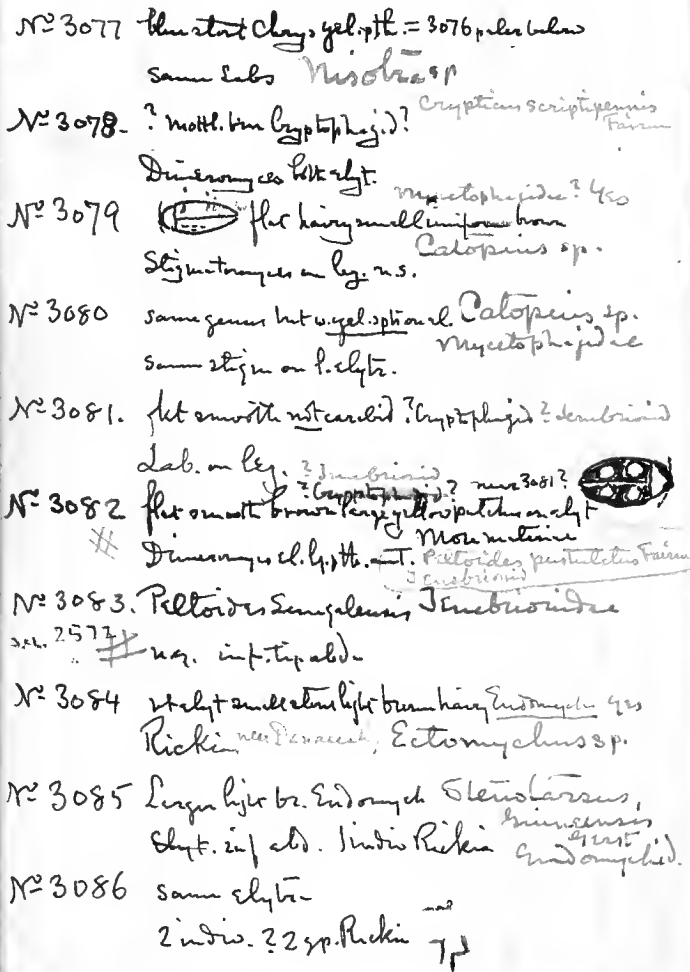 Nº 3077 blue start Chrys yel. pth. = 3076 paler below
same Labs Nisotra sp
Nº 3078. ? mottl. brn Cryptophagid? Crypticus scriptipennis Fairm
Dimeromyces both elyt.
Nº 3079 flat hairy small uniform brown Mycetophagidae? Yes
Catopius sp.
Stigmatomyces on leg. n.s.
Nº 3080 same genus but w. yel. spt on el. Catopius sp.
Mycetophagidae
same stigm on l. elytr.
Nº 3081. flat smooth not carabid ? Cryptophagid ? Tenebrionid
Lab. on leg. ? Tenebrionid
? Cryptophagid? near 3081?
Nº 3082 flat smooth brown large yellow patches on elyt
More material
Dimeromyces el. l. pth. ant. Peltoides pustulatus Fairm
Tenebrionid
Nº 3083. Peltoides Senegalensis Tenebrionidae
2577 inf. tip abd.
Nº 3084 elyt small light brown hairy Endomych yes
Rickia near Panaeus, Ectomychus sp.
Nº 3085 Larger light br. Endomych Stenotarsus,
guineensis Gerst
Elyt. inf abd. 1 indiv Rickia Endomychid.
Nº 3086 same elytr.
2 indiv. ? 2 sp. Rickia